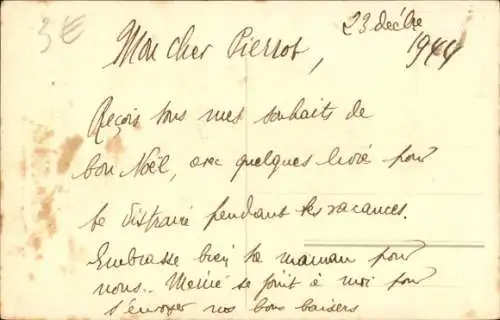 3€
23 déc'bre
1944
Mon cher Pierrot,
Reçois tous mes souhaits de
bon Noël, avec quelques livre pour
te distraire pendant tes vacances.
Embrasse bien ta maman pour
nous.. se joint à moi pour
t'envoyer nos bons baisers